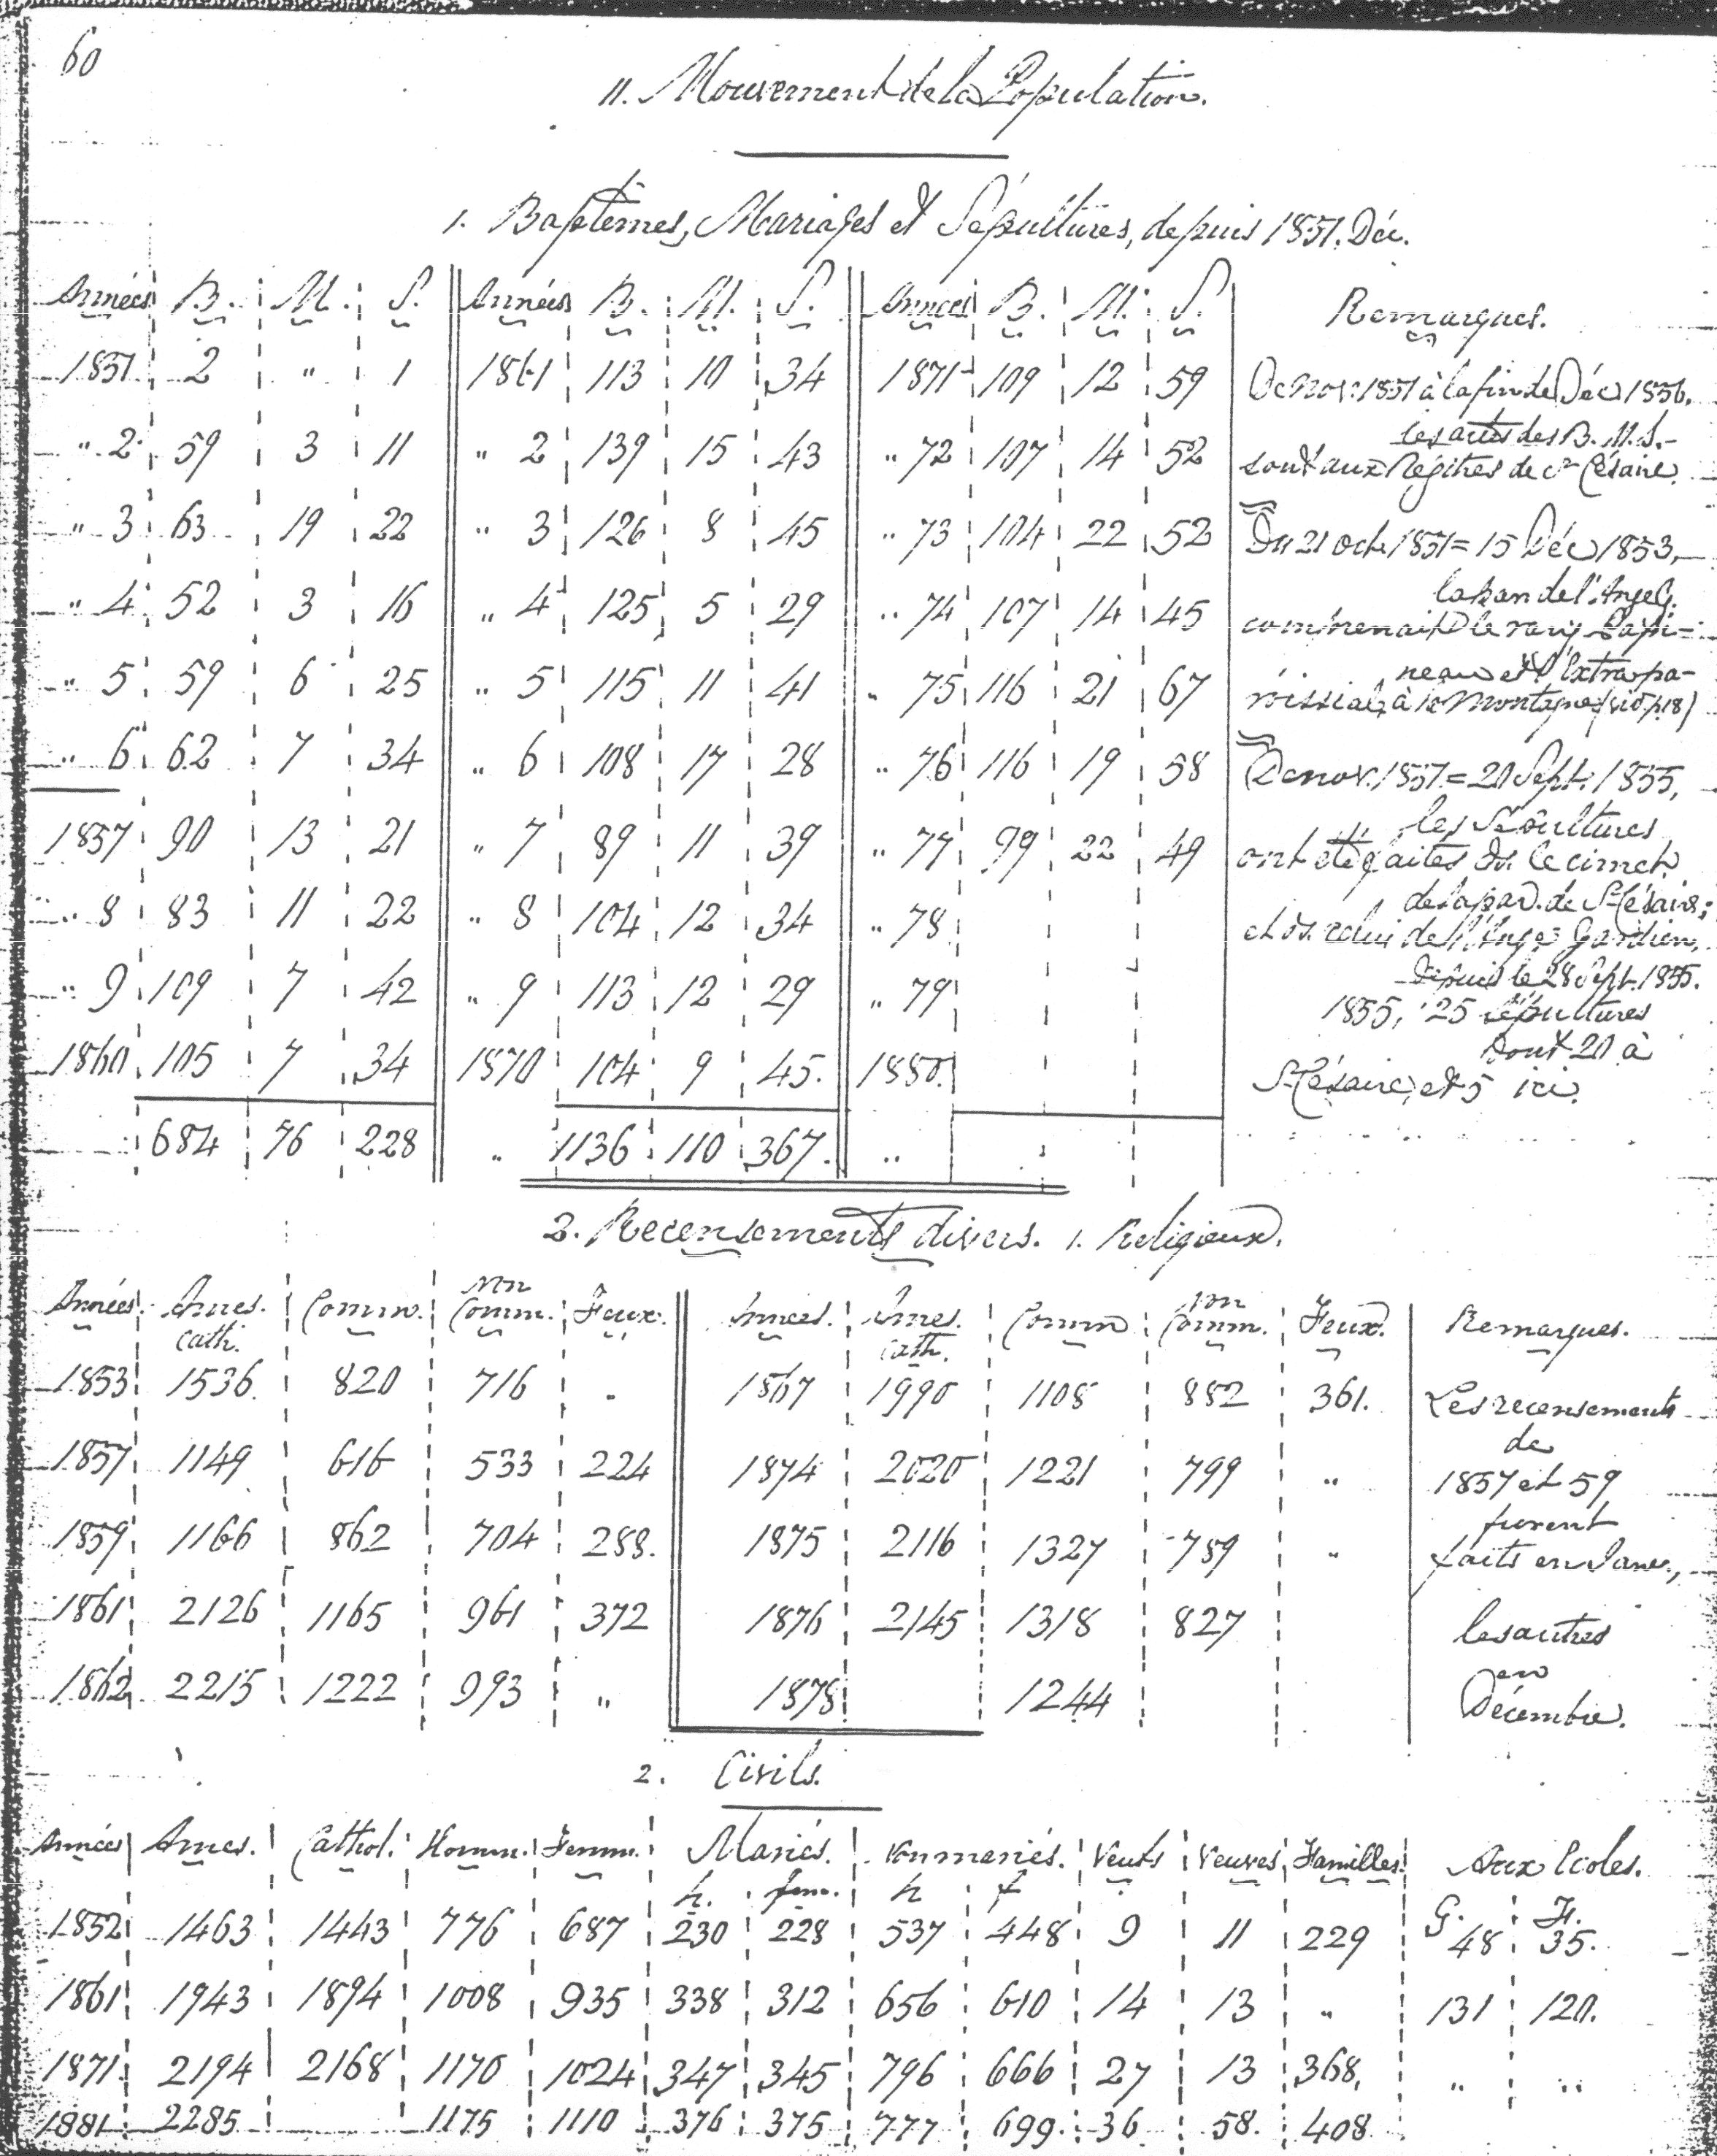 60
11. Mouvement de la Population.
1. Baptêmes, Mariages et Sépultures, depuis 1851. Déc.
Années B. M. S. Années B. M. S. Années B. M. S. Remarques.
1851 2 " 1 1861 113 10 34 1871 109 12 59 De Nov. 1851 à la fin de Déc 1856.
les actes des B. M. S.
" 2 59 3 11 " 2 139 15 43 " 72 107 14 52 sont aux Régitres de St Césaire
" 3 63 19 22 " 3 126 8 45 " 73 104 22 52 Du 21 oct. 1851 = 15 Déc 1853,
la par. de l'Ange G.
" 4 52 3 16 " 4 125 5 29 " 74 107 14 45 comprenait le rang Papi=
neau et l'Extrapa-
" 5 59 6 25 " 5 115 11 41 " 75 116 21 67 roissial, à la Montagne (vid p. 18)
" 6 62 7 34 " 6 108 17 28 " 76 116 19 58 De nov. 1851 = 20 Sept. 1855,
les Sépultures
1857 90 13 21 " 7 89 11 39 " 77 99 22 49 ont été faites ds. le cimet.
de la par. de St Césaire;
" 8 83 11 22 " 8 104 12 34 " 78 et ds. celui de l'Ange Gardien,
depuis le 28 Sept. 1855.
" 9 109 7 42 " 9 113 12 29 " 79 1855, 25 sépultures
dont 20 à
1860 105 7 34 1870 104 9 45. 1880. St Césaire, et 5 ici.
684 76 228 " 1136 110 367. "
2. Recensements divers. 1. Religieux.
Années. Ames. cath. Comm. non Comm. Feux. Années. Ames. cath. Comm non Comm. Feux. Remarques.
1853 1536. 820 716 . 1867 1990 1108 882 361. Les recensements
de
1857 1149 616 533 224 1874 2020 1221 799 " 1857 et 59
furent
1859 1166 862 704 288. 1875 2116 1327 789 " faits en Janv.,
1861 2126 1165 961 372 1876 2145 1318 827 les autres
en
1862 2215 1222 993 " 1878 1244 Décembre.
2. Civils.
Années Ames. Cathol. Homm. Femm. Mariés. non mariés. Veufs Veuves Familles. Aux Ecoles.
h. fem. h f G. F.
1852 1463 1443 776 687 230 228 537 448 9 11 229 48 35.
1861 1943 1894 1008 935 338 312 656 610 14 13 " 131 120.
1871 2194 2168 1170 1024 347 345 796 666 27 13 368, " "
1881 2285 1175 1110 376 375 777 699. 36 58. 408